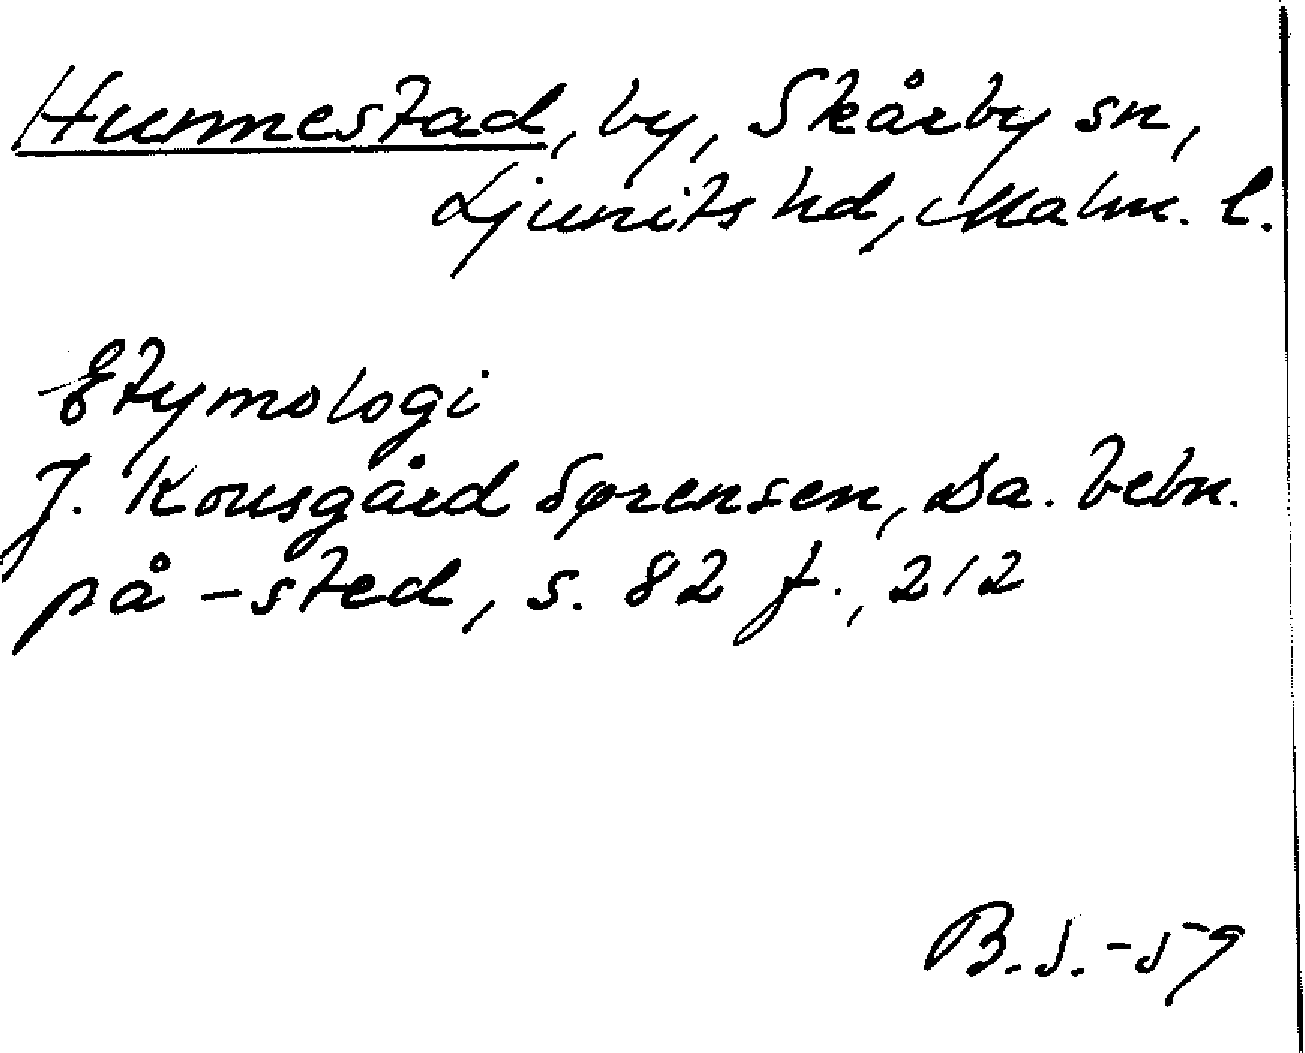 Hunnestad, by, Skårby sn,
Ljunits hd, Malm. l.
Etymologi
J. Kousgård Sørensen, Da. bebn.
på -sted, s. 82 f., 212
B.J.-59